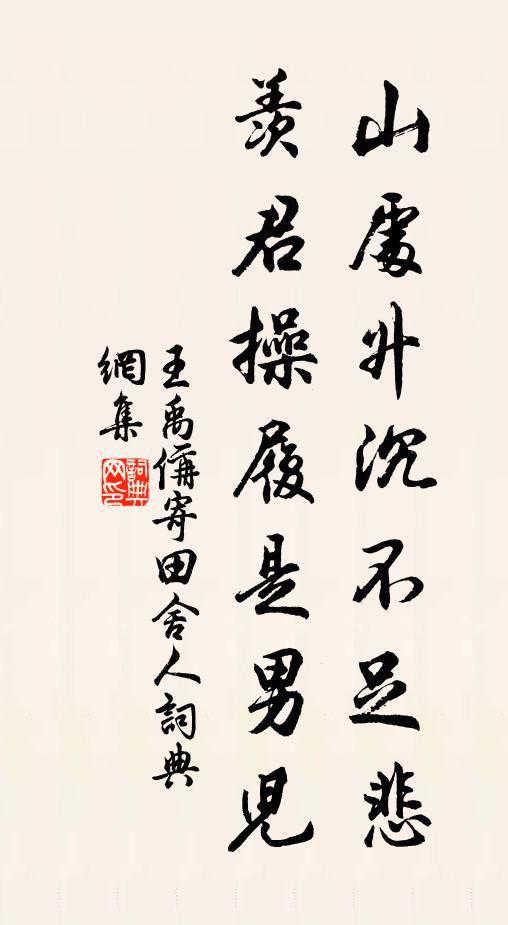 山處升沉不足悲
羨君操履是男兒
王禹偁寄田舍人詞典
網集
詞典
網印